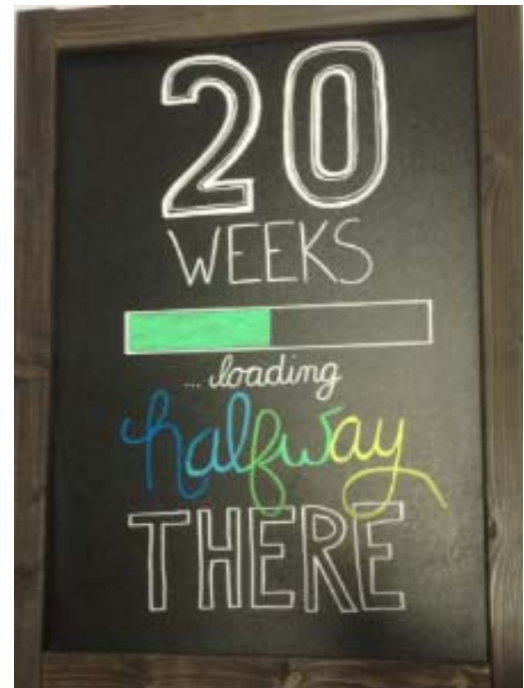 20
WEEKS
...loading
halfway
THERE